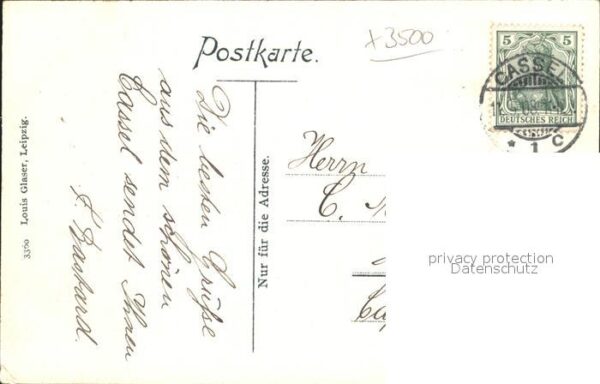 Postkarte.
x3500
5 5
DEUTSCHES REICH
CASSEL
* 1 C
Die besten Grüße
aus dem schönen
Cassel sendet Ihnen
F. Bastard.
Nur für die Adresse.
Herrn
C.
3360 Louis Glaser, Leipzig.
privacy protection
Datenschutz